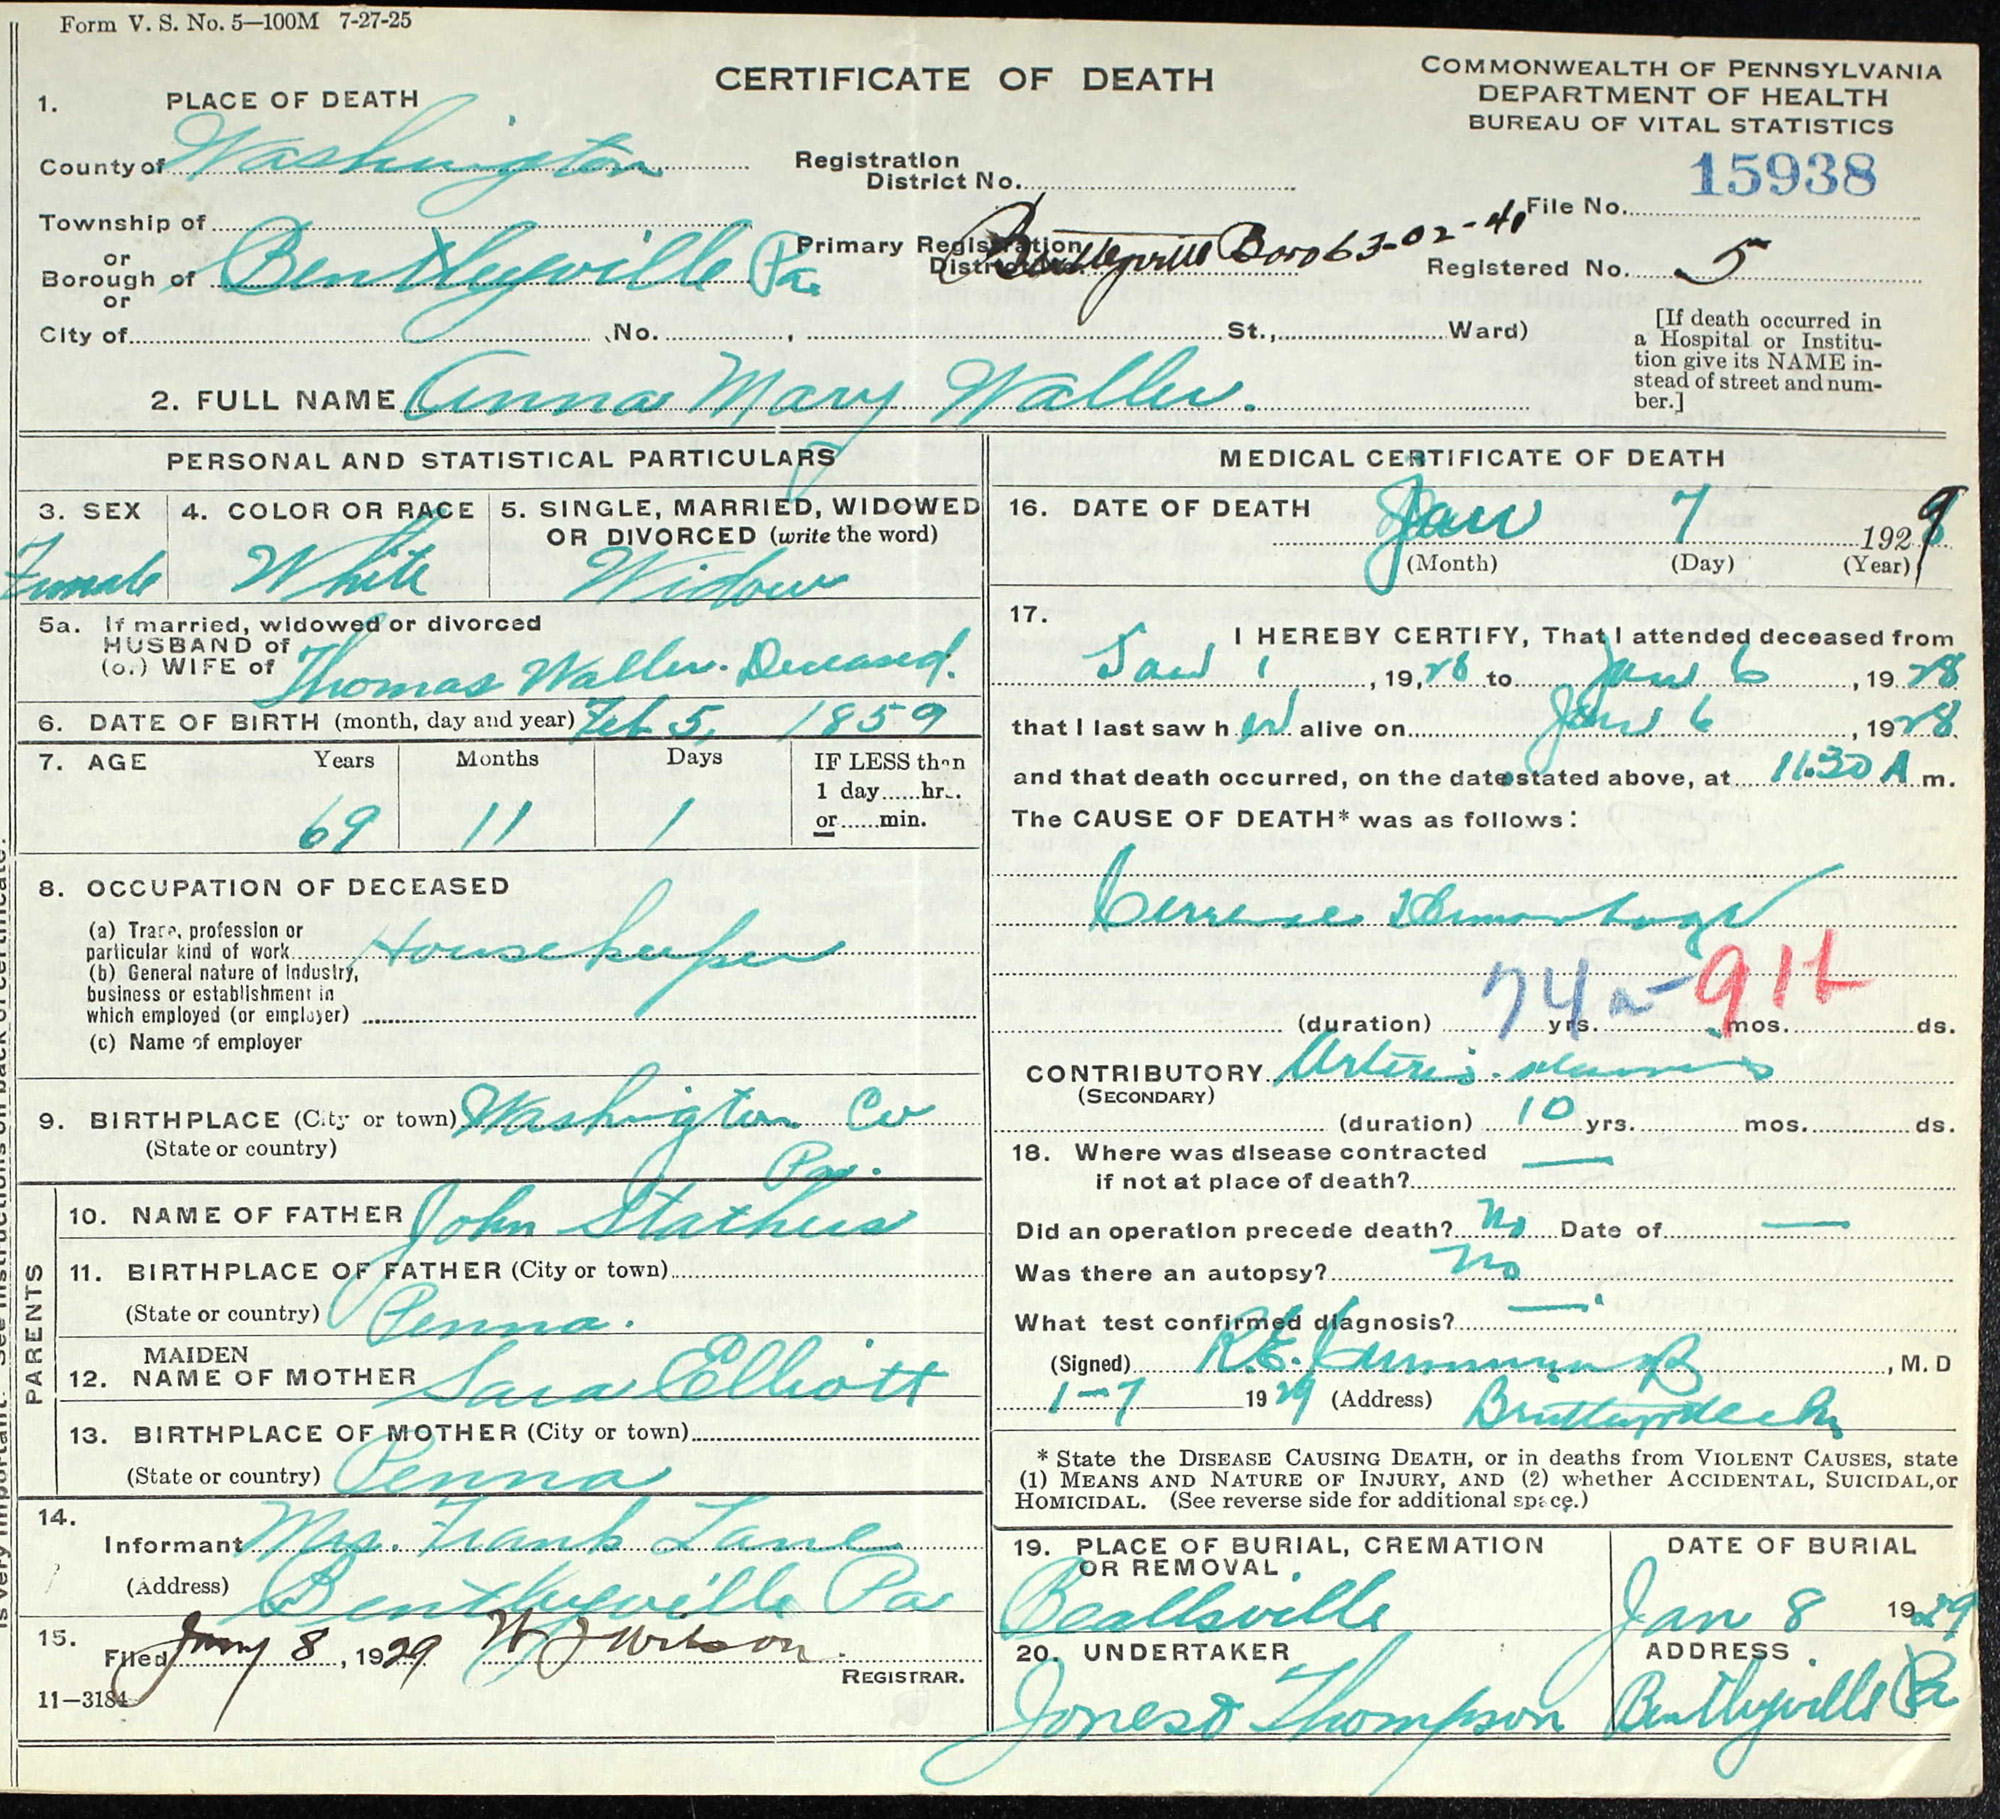 Form V. S. No. 5—100M 7-27-25
CERTIFICATE OF DEATH
COMMONWEALTH OF PENNSYLVANIA
DEPARTMENT OF HEALTH
BUREAU OF VITAL STATISTICS
1. PLACE OF DEATH
County of Washington
Registration District No.
15938
File No.
Township of
or
Borough of Bentleyville Pa.
Primary Registration District No. Bentleyville Boro 63-02-41
Registered No. 5
or
City of No. , St., Ward)
[If death occurred in
a Hospital or Institu-
tion give its NAME in-
stead of street and num-
ber.]
2. FULL NAME Anna Mary Waller.
PERSONAL AND STATISTICAL PARTICULARS
3. SEX
Female
4. COLOR OR RACE
White
5. SINGLE, MARRIED, WIDOWED
OR DIVORCED (write the word)
Widow
5a. If married, widowed or divorced
HUSBAND of
(or) WIFE of Thomas Waller. Deceased.
6. DATE OF BIRTH (month, day and year) Feb 5, 1859
7. AGE Years Months Days IF LESS than
1 day hrs.
or min.
69 11 1
8. OCCUPATION OF DECEASED
(a) Trade, profession or
particular kind of work Housekeeper
(b) General nature of Industry,
business or establishment in
which employed (or employer)
(c) Name of employer
9. BIRTHPLACE (City or town) Washington Co
(State or country) Pa.
PARENTS
10. NAME OF FATHER John
11. BIRTHPLACE OF FATHER (City or town)
(State or country) Penna.
12. MAIDEN
NAME OF MOTHER Sara Elliott
13. BIRTHPLACE OF MOTHER (City or town)
(State or country) Penna
14.
Informant Mrs. Frank Lane
(Address) Bentleyville Pa
15.
Filed Jany 8, 1929 W J Wilson
REGISTRAR.
11—3184
MEDICAL CERTIFICATE OF DEATH
16. DATE OF DEATH Jan 7 1929
(Month) (Day) (Year)
17.
I HEREBY CERTIFY, That I attended deceased from
Jan 1, 1928 to Jan 6, 1928
that I last saw her alive on Jan 6, 1928
and that death occurred, on the date stated above, at 11.30 A m.
The CAUSE OF DEATH* was as follows:
Hemorrhage
74a 911
(duration) yrs. mos. ds.
CONTRIBUTORY Arterio-
(SECONDARY)
(duration) 10 yrs. mos. ds.
18. Where was disease contracted
if not at place of death? —
Did an operation precede death? No Date of —
Was there an autopsy? No
What test confirmed diagnosis? —
(Signed) R.E. , M. D
1-7 1929 (Address)
* State the DISEASE CAUSING DEATH, or in deaths from VIOLENT CAUSES, state
(1) MEANS AND NATURE OF INJURY, AND (2) whether ACCIDENTAL, SUICIDAL, or
HOMICIDAL. (See reverse side for additional space.)
19. PLACE OF BURIAL, CREMATION
OR REMOVAL
Beallsville
DATE OF BURIAL
Jan 8 1929
20. UNDERTAKER
Jones & Thompson
ADDRESS
Bentleyville Pa